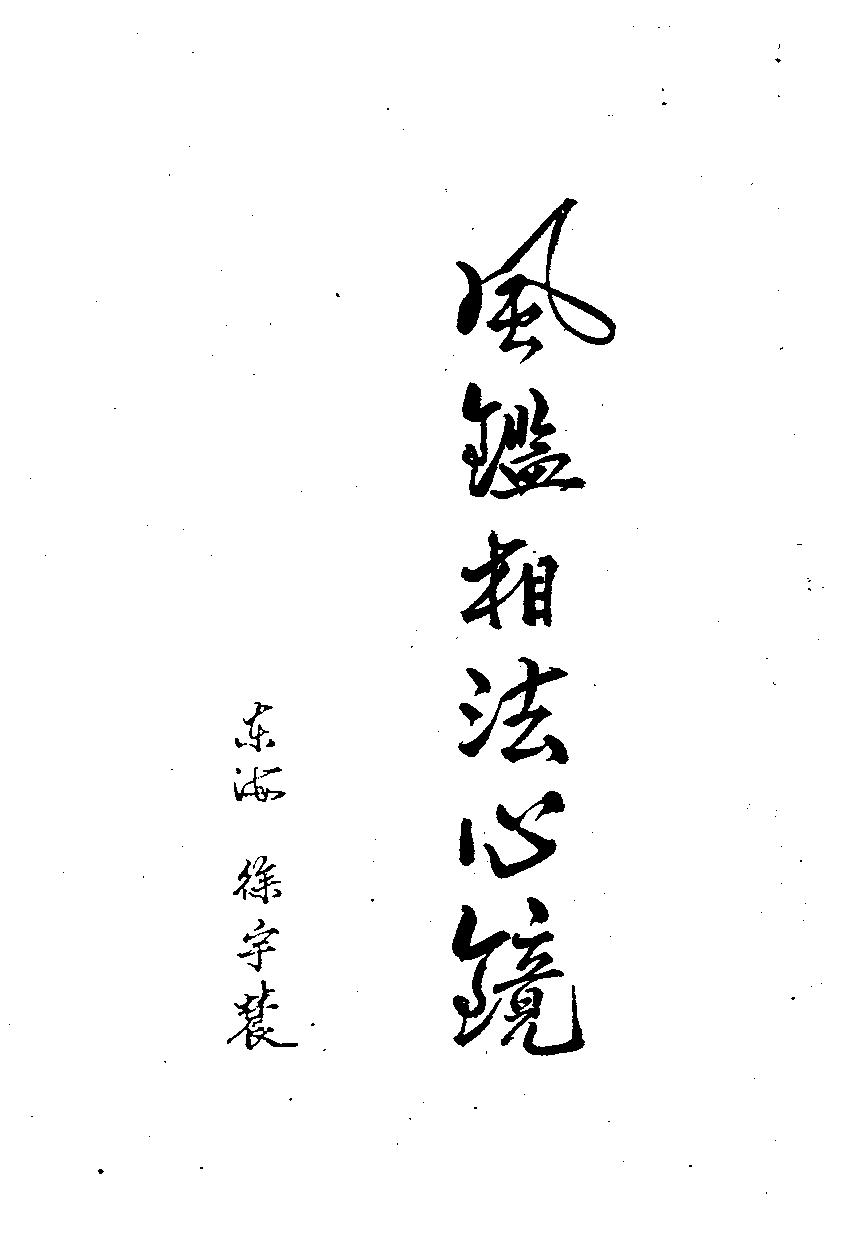 風鑑相法心鏡
东海 徐宇辳